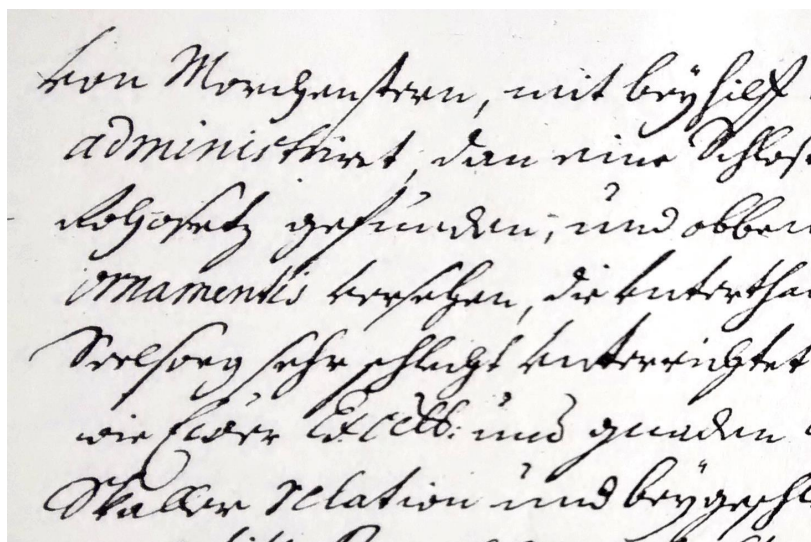 von Morchenstern, mit beyhilf
administriret, dan eine Schlos
Rohosetz gefunden, und obben
ornamentis versehen, die untertha
Seelsorg sehr schlecht unterrichtet
wie Euer Excell: und gnaden
Skaller relation und beygeschl